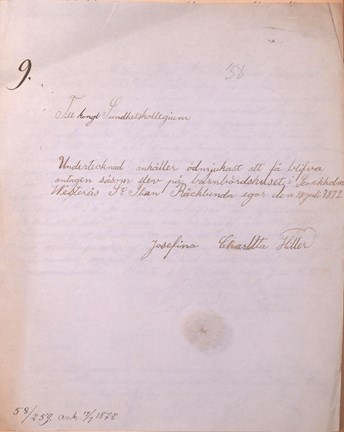 9.
58
Till Kongl Sundhetskollegium
Undertecknad anhåller ödmjukast att få blifva
antagen såsom elev på barnbördshuset i Stockholm
Westerås Räcklunda egor den 10 juli 1872
Josefina Charlltta Hiller
58/259. ank 1872